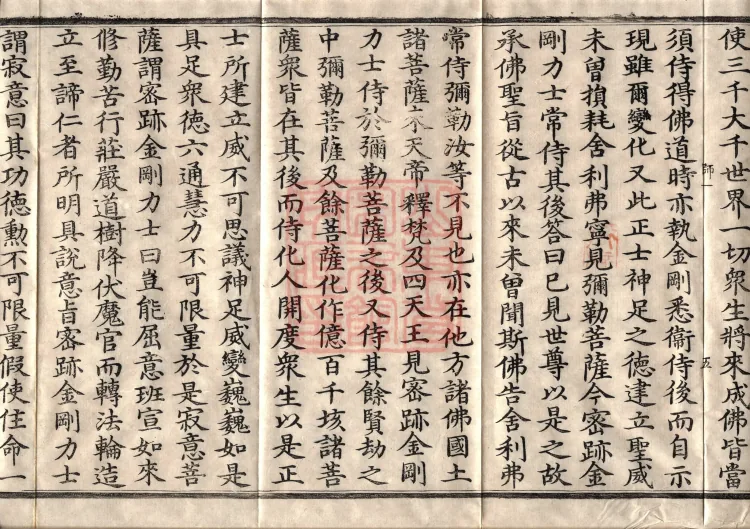 使三千大千世界一切衆生將來成佛皆當
須侍得佛道時亦執金剛悉衞侍後而自示
現雖爾變化又此正士神足之德建立聖威
未曾損耗舍利弗寧見彌勒菩薩今密跡金
剛力士常侍其後荅曰已見世尊以是之故
承佛聖旨從古以來未曾聞斯佛告舍利弗
常侍彌勒汝等不見也亦在他方諸佛國土
諸菩薩衆天帝釋梵及四天王見密跡金剛
力士侍於彌勒菩薩之後又侍其餘賢劫之
中彌勒菩薩及餘菩薩化作億百千垓諸菩
薩衆皆在其後而侍化人開度衆生以是正
士所建立威不可思議神足威變巍巍如是
具足衆德六通慧力不可限量於是寂意菩
薩謂密跡金剛力士曰豈能屈意班宣如來
修勤苦行莊嚴道樹降伏魔官而轉法輪造
立至諦仁者所明具說意旨密跡金剛力士
謂寂意曰其功德勲不可限量假使住命一
師一
五